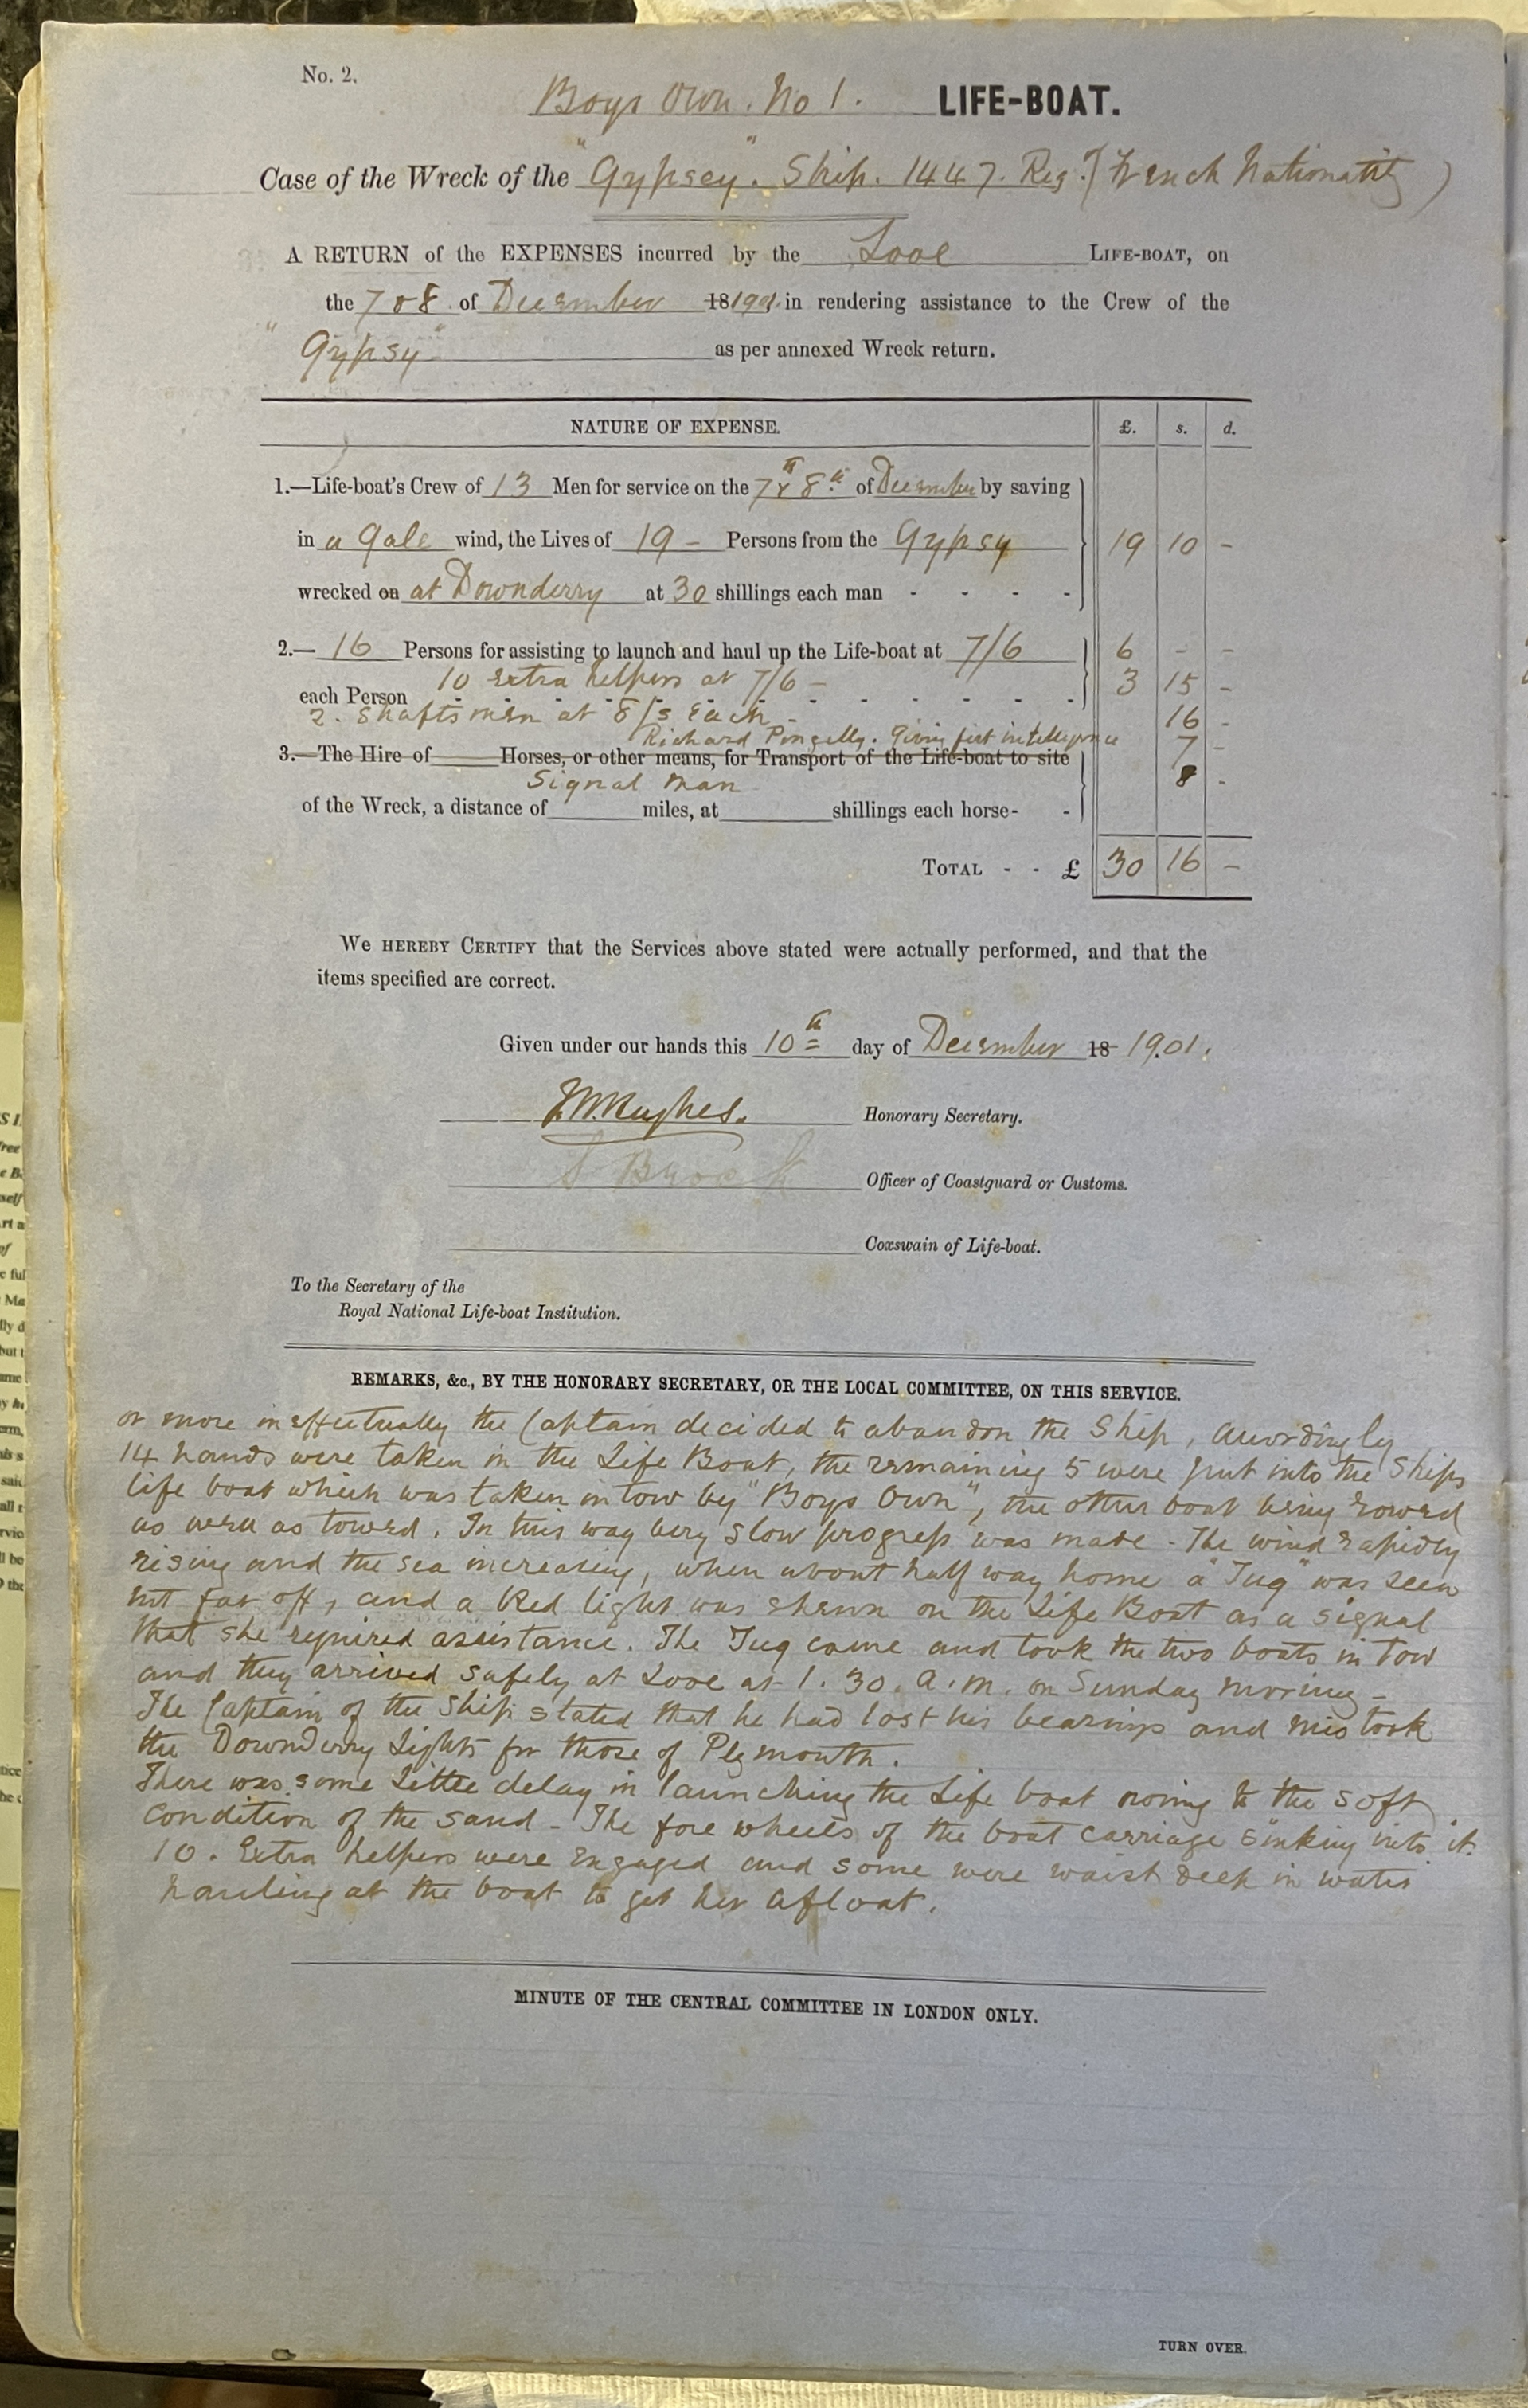 No. 2.
Boys Own. No 1. LIFE-BOAT.
Case of the Wreck of the "Gypsey". Ship. 1447. Reg. (French Nationality)
A RETURN of the EXPENSES incurred by the Looe LIFE-BOAT, on
the 7 & 8. of December 18 1901. in rendering assistance to the Crew of the
"Gypsy" as per annexed Wreck return.
NATURE OF EXPENSE. £. s. d.
1.—Life-boat's Crew of 13 Men for service on the 7th & 8th of December by saving
in a Gale wind, the Lives of 19 - Persons from the Gypsy 19 10 -
wrecked on at Downderry at 30 shillings each man - - - -
2.— 16 Persons for assisting to launch and haul up the Life-boat at 7/6 6 - -
10 Extra helpers at 7/6 - 3 15 -
each Person - - - - - - -
2. Shaftsmen at 8/s Each - 16 -
Richard Pengelly. Giving first intelligence 7 -
3.—The Hire of Horses, or other means, for Transport of the Life-boat to site
Signal Man 8 -
of the Wreck, a distance of miles, at shillings each horse- -
TOTAL - - £ 30 16 -
We HEREBY CERTIFY that the Services above stated were actually performed, and that the
items specified are correct.
Given under our hands this 10th day of December 18 1901.
Hughes. Honorary Secretary.
Officer of Coastguard or Customs.
Coxswain of Life-boat.
To the Secretary of the
Royal National Life-boat Institution.
REMARKS, &c., BY THE HONORARY SECRETARY, OR THE LOCAL COMMITTEE, ON THIS SERVICE.
or more ineffectually the Captain decided to abandon the Ship, Accordingly
14 hands were taken in the Life Boat, the remaining 5 were put into the Ships
life boat which was taken in tow by "Boys Own", the other boat being rowed
as well as towed. In this way very slow progress was made - The wind rapidly
rising and the sea increasing, when about half way home a "Tug" was seen
not far off, and a Red light was shewn on the Life Boat as a signal
that she required assistance. The Tug came and took the two boats in tow
and they arrived safely at Looe at 1.30. a.m. on Sunday morning -
The Captain of the Ship stated that he had lost his bearings and mistook
the Downderry Lights for those of Plymouth.
There was some little delay in launching the Life boat owing to the soft
condition of the sand - The fore wheels of the boat carriage sinking into it.
10. Extra helpers were Engaged and some were waist deep in water
hauling at the boat to get her afloat.
MINUTE OF THE CENTRAL COMMITTEE IN LONDON ONLY.
TURN OVER.